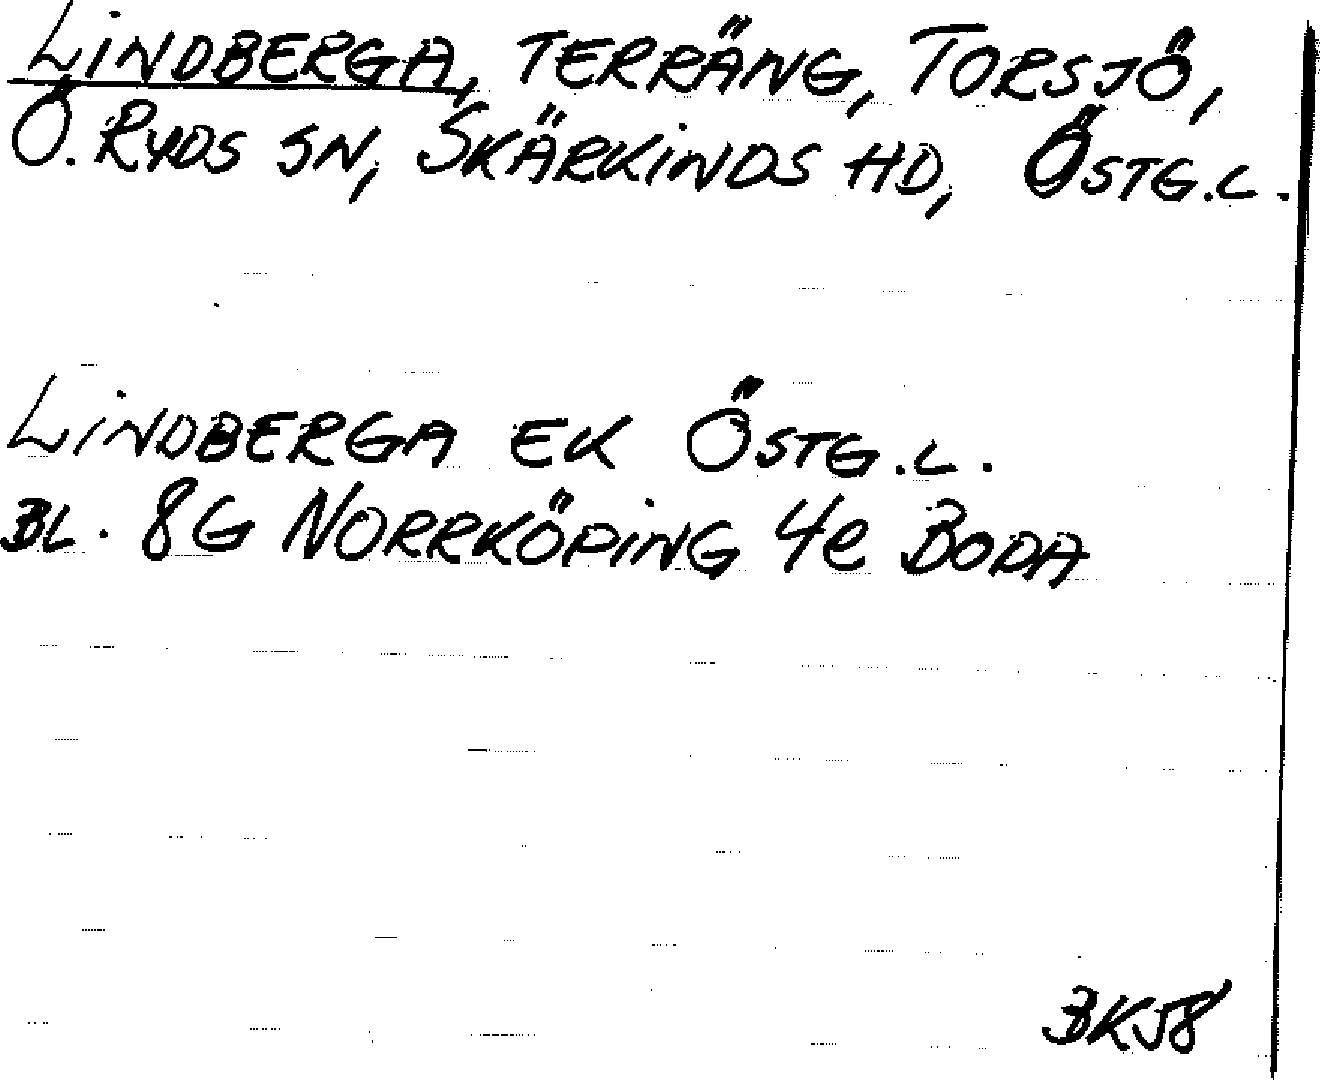 LINDBERGA, TERRÄNG, TORSJÖ,
Ö. RYDS SN, SKÄRKINDS HD, ÖSTG.L.
LINDBERGA EK ÖSTG.L.
BL. 8G NORRKÖPING 4e BODA
BK58